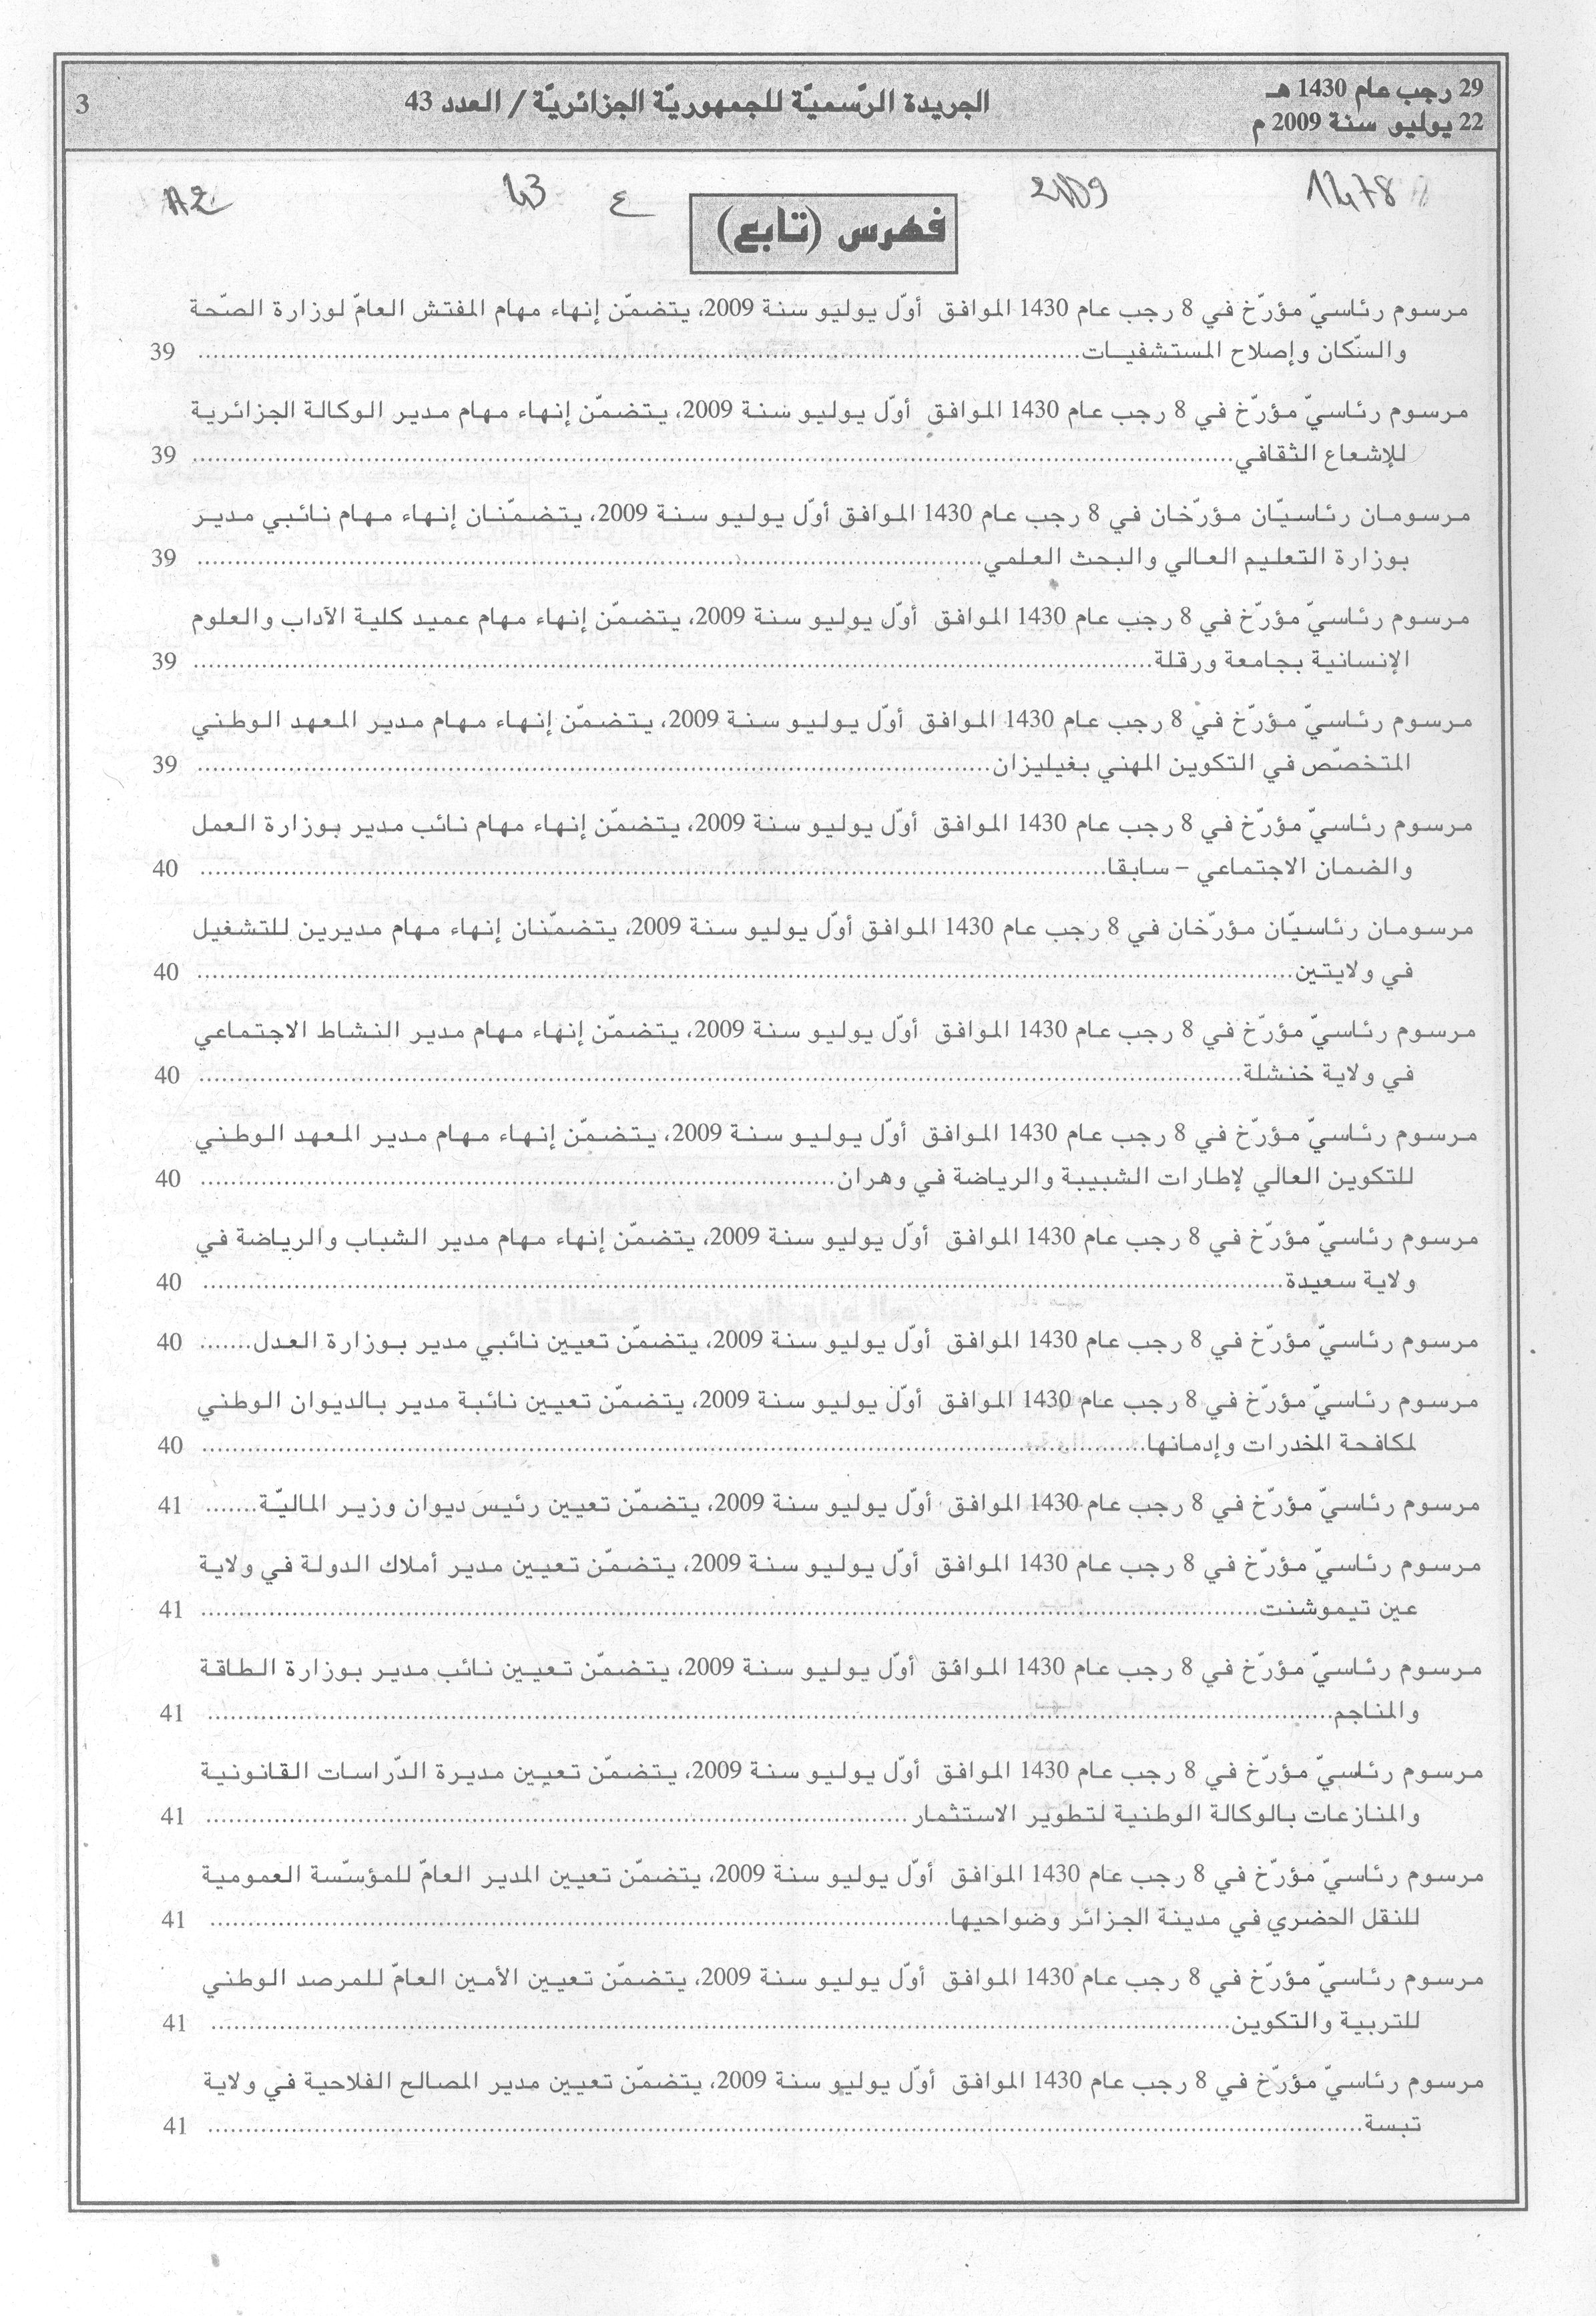 29 رجب عام 1430 هـ
22 يوليو سنة 2009 م
الجريدة الرّسميّة للجمهوريّة الجزائريّة / العدد 43
3
43 ع
A2
فهرس (تابع)
مرسوم رئاسيّ مؤرّخ في 8 رجب عام 1430 الموافق أوّل يوليو سنة 2009، يتضمّن إنهاء مهام المفتش العامّ لوزارة الصّحة
والسّكان وإصلاح المستشفيات................ 39
مرسوم رئاسيّ مؤرّخ في 8 رجب عام 1430 الموافق أوّل يوليو سنة 2009، يتضمّن إنهاء مهام مدير الوكالة الجزائرية
للإشعاع الثقافي................ 39
مرسومان رئاسيّان مؤرّخان في 8 رجب عام 1430 الموافق أوّل يوليو سنة 2009، يتضمّنان إنهاء مهام نائبي مدير
بوزارة التعليم العالي والبحث العلمي................ 39
مرسوم رئاسيّ مؤرّخ في 8 رجب عام 1430 الموافق أوّل يوليو سنة 2009، يتضمّن إنهاء مهام عميد كلية الآداب والعلوم
الإنسانية بجامعة ورقلة................ 39
مرسوم رئاسيّ مؤرّخ في 8 رجب عام 1430 الموافق أوّل يوليو سنة 2009، يتضمّن إنهاء مهام مدير المعهد الوطني
المتخصّص في التكوين المهني بغيليزان................ 39
مرسوم رئاسيّ مؤرّخ في 8 رجب عام 1430 الموافق أوّل يوليو سنة 2009، يتضمّن إنهاء مهام نائب مدير بوزارة العمل
والضمان الاجتماعي – سابقا................ 40
مرسومان رئاسيّان مؤرّخان في 8 رجب عام 1430 الموافق أوّل يوليو سنة 2009، يتضمّنان إنهاء مهام مديرين للتشغيل
في ولايتين................ 40
مرسوم رئاسيّ مؤرّخ في 8 رجب عام 1430 الموافق أوّل يوليو سنة 2009، يتضمّن إنهاء مهام مدير النشاط الاجتماعي
في ولاية خنشلة................ 40
مرسوم رئاسيّ مؤرّخ في 8 رجب عام 1430 الموافق أوّل يوليو سنة 2009، يتضمّن إنهاء مهام مدير المعهد الوطني
للتكوين العالي لإطارات الشبيبة والرياضة في وهران................ 40
مرسوم رئاسيّ مؤرّخ في 8 رجب عام 1430 الموافق أوّل يوليو سنة 2009، يتضمّن إنهاء مهام مدير الشباب والرياضة في
ولاية سعيدة................ 40
مرسوم رئاسيّ مؤرّخ في 8 رجب عام 1430 الموافق أوّل يوليو سنة 2009، يتضمّن تعيين نائبي مدير بوزارة العدل....... 40
مرسوم رئاسيّ مؤرّخ في 8 رجب عام 1430 الموافق أوّل يوليو سنة 2009، يتضمّن تعيين نائبة مدير بالديوان الوطني
لمكافحة المخدرات وإدمانها................ 40
مرسوم رئاسيّ مؤرّخ في 8 رجب عام 1430 الموافق أوّل يوليو سنة 2009، يتضمّن تعيين رئيس ديوان وزير الماليّة....... 41
مرسوم رئاسيّ مؤرّخ في 8 رجب عام 1430 الموافق أوّل يوليو سنة 2009، يتضمّن تعيين مدير أملاك الدولة في ولاية
عين تيموشنت................ 41
مرسوم رئاسيّ مؤرّخ في 8 رجب عام 1430 الموافق أوّل يوليو سنة 2009، يتضمّن تعيين نائب مدير بوزارة الطاقة
والمناجم................ 41
مرسوم رئاسيّ مؤرّخ في 8 رجب عام 1430 الموافق أوّل يوليو سنة 2009، يتضمّن تعيين مديرة الدّراسات القانونية
والمنازعات بالوكالة الوطنية لتطوير الاستثمار................ 41
مرسوم رئاسيّ مؤرّخ في 8 رجب عام 1430 الموافق أوّل يوليو سنة 2009، يتضمّن تعيين المدير العامّ للمؤسّسة العمومية
للنقل الحضري في مدينة الجزائر وضواحيها................ 41
مرسوم رئاسيّ مؤرّخ في 8 رجب عام 1430 الموافق أوّل يوليو سنة 2009، يتضمّن تعيين الأمين العامّ للمرصد الوطني
للتربية والتكوين................ 41
مرسوم رئاسيّ مؤرّخ في 8 رجب عام 1430 الموافق أوّل يوليو سنة 2009، يتضمّن تعيين مدير المصالح الفلاحية في ولاية
تبسة................ 41